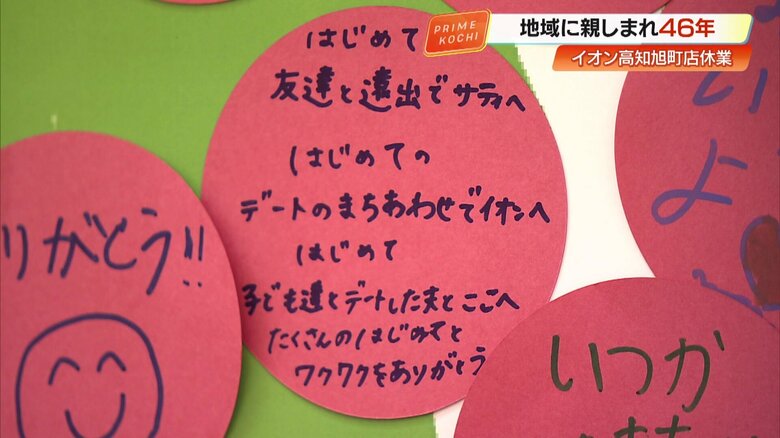 PRIME KOCHI
地域に親しまれ46年
イオン高知旭町店休業
はじめて
友達と遠出でサティへ
はじめての
デートのまちあわせでイオンへ
はじめて
子ども達とデートした夫とここへ
たくさんのはじめてと
ワクワクをありがとう
りがとう!!
よ
いつか